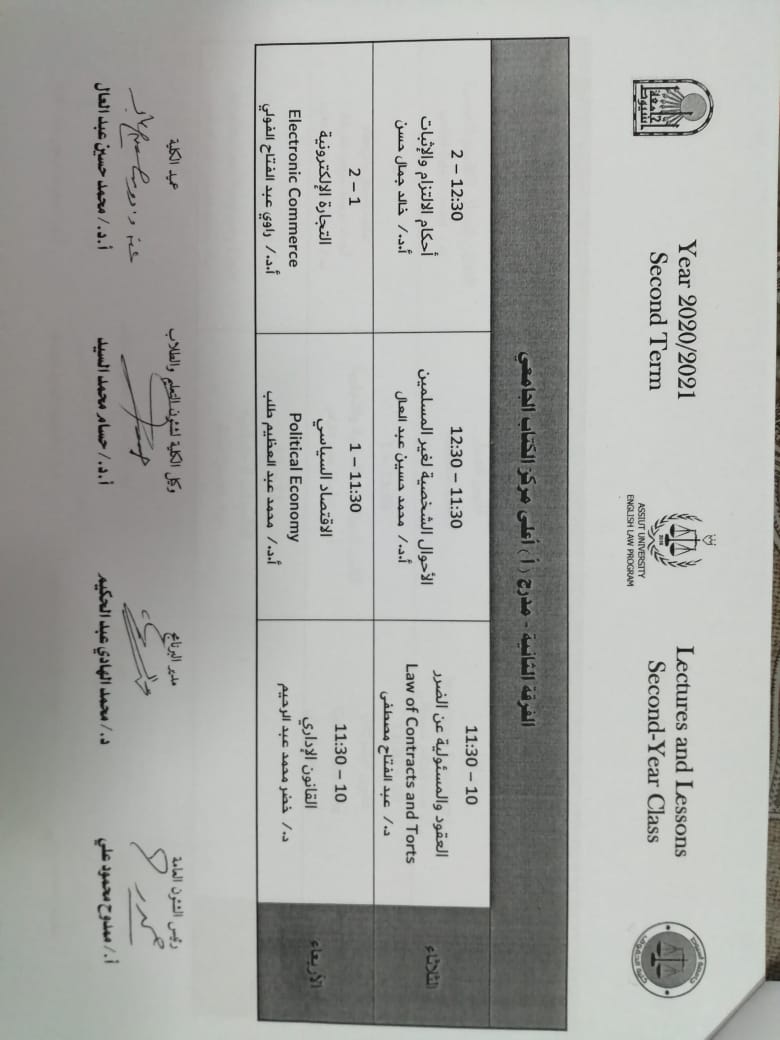 جامعة أسيوط
Year 2020/2021
Second Term
ASSIUT UNIVERSITY
ENGLISH LAW PROGRAM
Lectures and Lessons
Second-Year Class
الفرقة الثانية - مدرج (أ) أعلى مركز الكتاب الجامعي
الثلاثاء
11:30 – 10
العقود والمسئولية عن الضرر
Law of Contracts and Torts
د./ عبد الفتاح مصطفى
12:30 – 11:30
الأحوال الشخصية لغير المسلمين
أ.د./ محمد حسين عبد العال
2 – 12:30
أحكام الالتزام والإثبات
أ.د./ خالد جمال حسن
الأربعاء
11:30 – 10
القانون الإداري
د./ خضر محمد عبد الرحيم
1 – 11:30
الاقتصاد السياسي
Political Economy
أ.د./ محمد عبد العظيم طلب
2 – 1
التجارة الإلكترونية
Electronic Commerce
أ.د./ راوي عبد الفتاح الفولي
رئيس الشئون العامة
أ./ ممدوح محمود علي
مدير البرنامج
د./ محمد الهادي عبد الحكيم
وكيل الكلية لشئون التعليم والطلاب
أ.د./ حسام محمد السيد
عميد الكلية
أ.د./ محمد حسين عبد العال